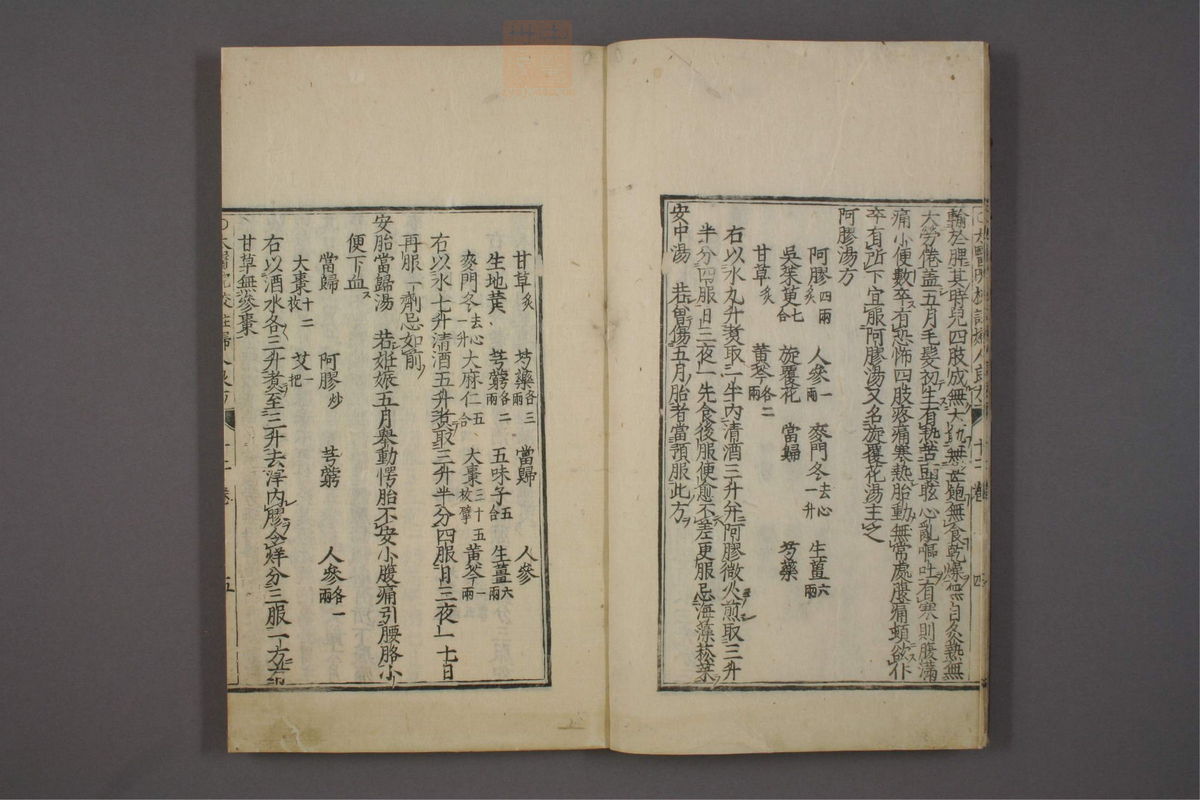 輸於脾其時兒四肢成無大飢無甚飽無食乾燥無自炙熱無
大勞倦蓋五月毛髮初生有熱苦頭眩心亂嘔吐有寒則腹滿
痛小便數卒有恐怖四肢疼痛寒熱胎動無常處腹痛頓欲仆
卒有所下宜服阿膠湯又名旋覆花湯主之
阿膠湯方
阿膠炙四兩 人參一兩 麥門冬去心一升 生薑六兩
吳茱萸七合 旋覆花 當歸 芍藥
甘草炙 黃芩各二兩
右以水九升煑取一半內清酒三升并阿膠微火煎取三升
半分四服日三夜一先食後服便愈不差更服忌海藻菘菜
安中湯 若曾傷五月胎者當預服此方
甘草炙 芍藥各三兩 當歸 人參
生地黃 芎藭各二兩 五味子五合 生薑六兩
麥門冬去心一升 大麻仁五合 大棗三十五枚擘 黃芩一兩
右以水七升清酒五升煑取三升半分四服日三夜一七日
再服一劑忌如前
安胎當歸湯 若姙娠五月舉動愕胎不安小腹痛引腰胳小
便下血
當歸 阿膠炒 芎藭 人參各一兩
大棗十二枚 艾一把
右以酒水各三升煑至三升去滓內膠令烊分三服一方
甘草無參棗
十二卷 四
十二卷 五